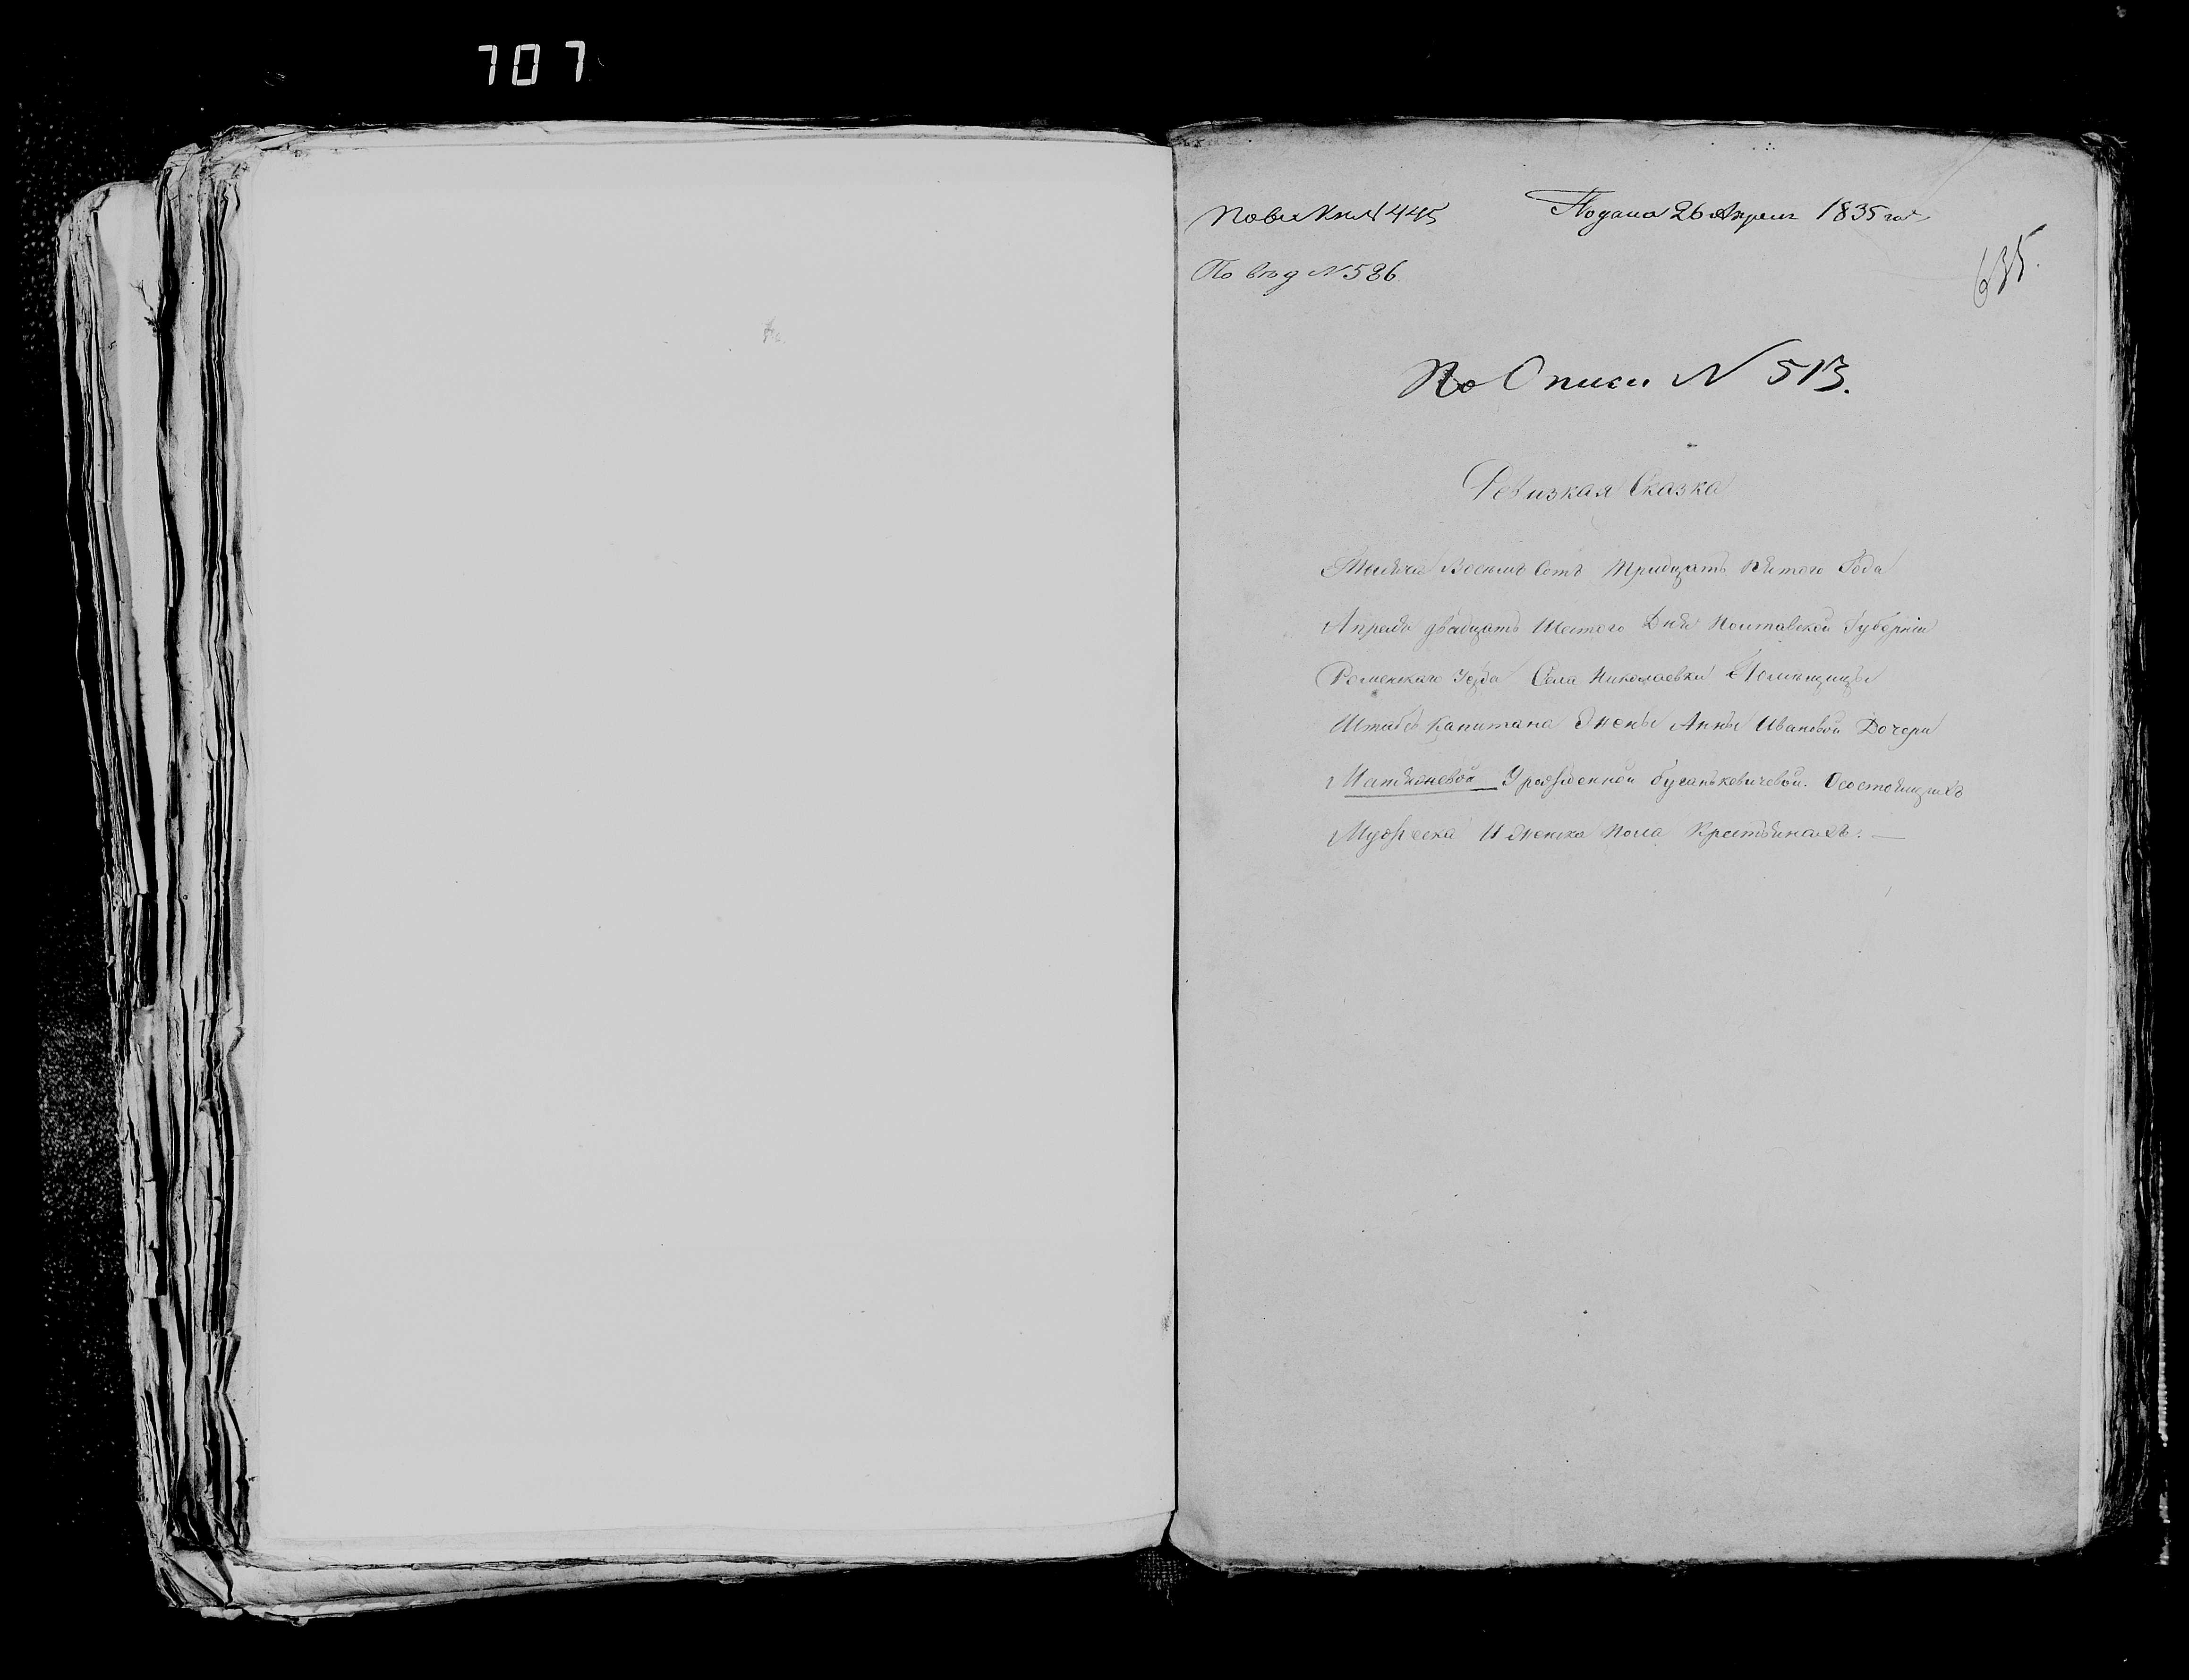 707
По вх Кн N 445
Подана 26 Апреля 1835 год
По вхд N 586
635.
По Описи N 513.
Ревизкая Сказка
Тысяча Восемь Сотъ Тридцать Пятого Года
Апреля двадцать Шестого Дня Полтавской Губернiи
Роменского Уезда Села Николаевки Помѣщицы
Штабсъ Капитана Жены Анны Ивановой Дочери
Урожденной Осостоящихъ
Мужеска И Женска Пола Крестьянахъ. —